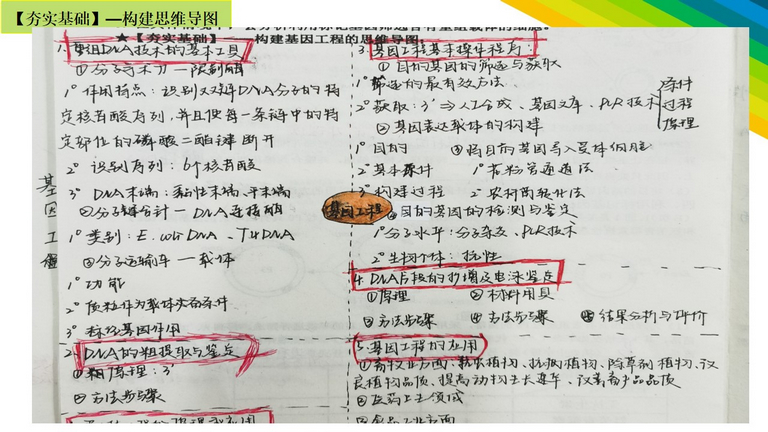 【夯实基础】—构建思维导图
★【夯实基础】 构建基因工程的思维导图
1. 重组DNA技术的基本工具
①分子手术刀—限制酶
1° 作用特点：识别双链DNA分子的特
定核苷酸序列，并且使每一条链中的特
定部位的磷酸二酯键断开
2° 识别序列：6个核苷酸
3° DNA末端：黏性末端、平末端
②分子缝合针—DNA连接酶
1° 类别：E.coliDNA、T4DNA
③分子运输车—载体
1° 功能
2° 质粒作为载体类备条件
3° 标记基因作用
2. DNA的粗提取与鉴定
①原理：3'
②方法步骤
基因工程
基因工程
3. 基因工程基本操作程序：
①目的基因的筛选与获取
1° 筛选的最有效方法
2° 获取：3' ⇒ 人工合成、基因文库、PCR技术
条件
过程
原理
②基因表达载体的构建
1° 目的
③将目的基因导入受体细胞
2° 基本条件 1° 花粉管通道法
3° 构建过程 2° 农杆菌转化法
④目的基因的检测与鉴定
1° 分子水平：分子杂交、PCR技术
2° 生物个体：抗性
4. DNA片段的扩增及电泳鉴定
①原理 ②材料用具
③方法步骤 ④方法步骤 ⑤结果分析与评价
5. 基因工程的应用
①畜牧业方面：抗虫植物、抗病植物、除草剂植物、改
良植物品质、提高动物生长速率、改善畜产品品质
②医药卫生领域
③食品工业方面